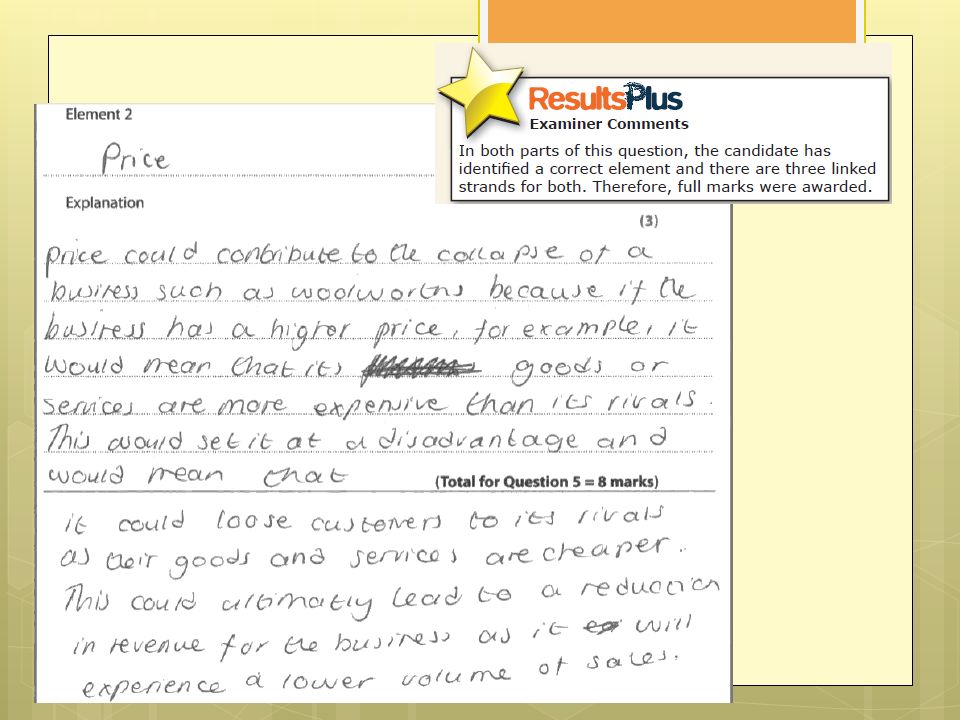 ResultsPlus
Examiner Comments
In both parts of this question, the candidate has
identified a correct element and there are three linked
strands for both. Therefore, full marks were awarded.
Element 2
Price
Explanation
(3)
price could contribute to the collapse of a
business such as woolworths because if the
business has a higher price, for example, it
would mean that its goods or
services are more expensive than its rivals.
This would set it at a disadvantage and
would mean that
(Total for Question 5 = 8 marks)
it could loose customers to its rivals
as their goods and services are cheaper.
This could ultimatly lead to a reduction
in revenue for the business as it will
experience a lower volume of sales.